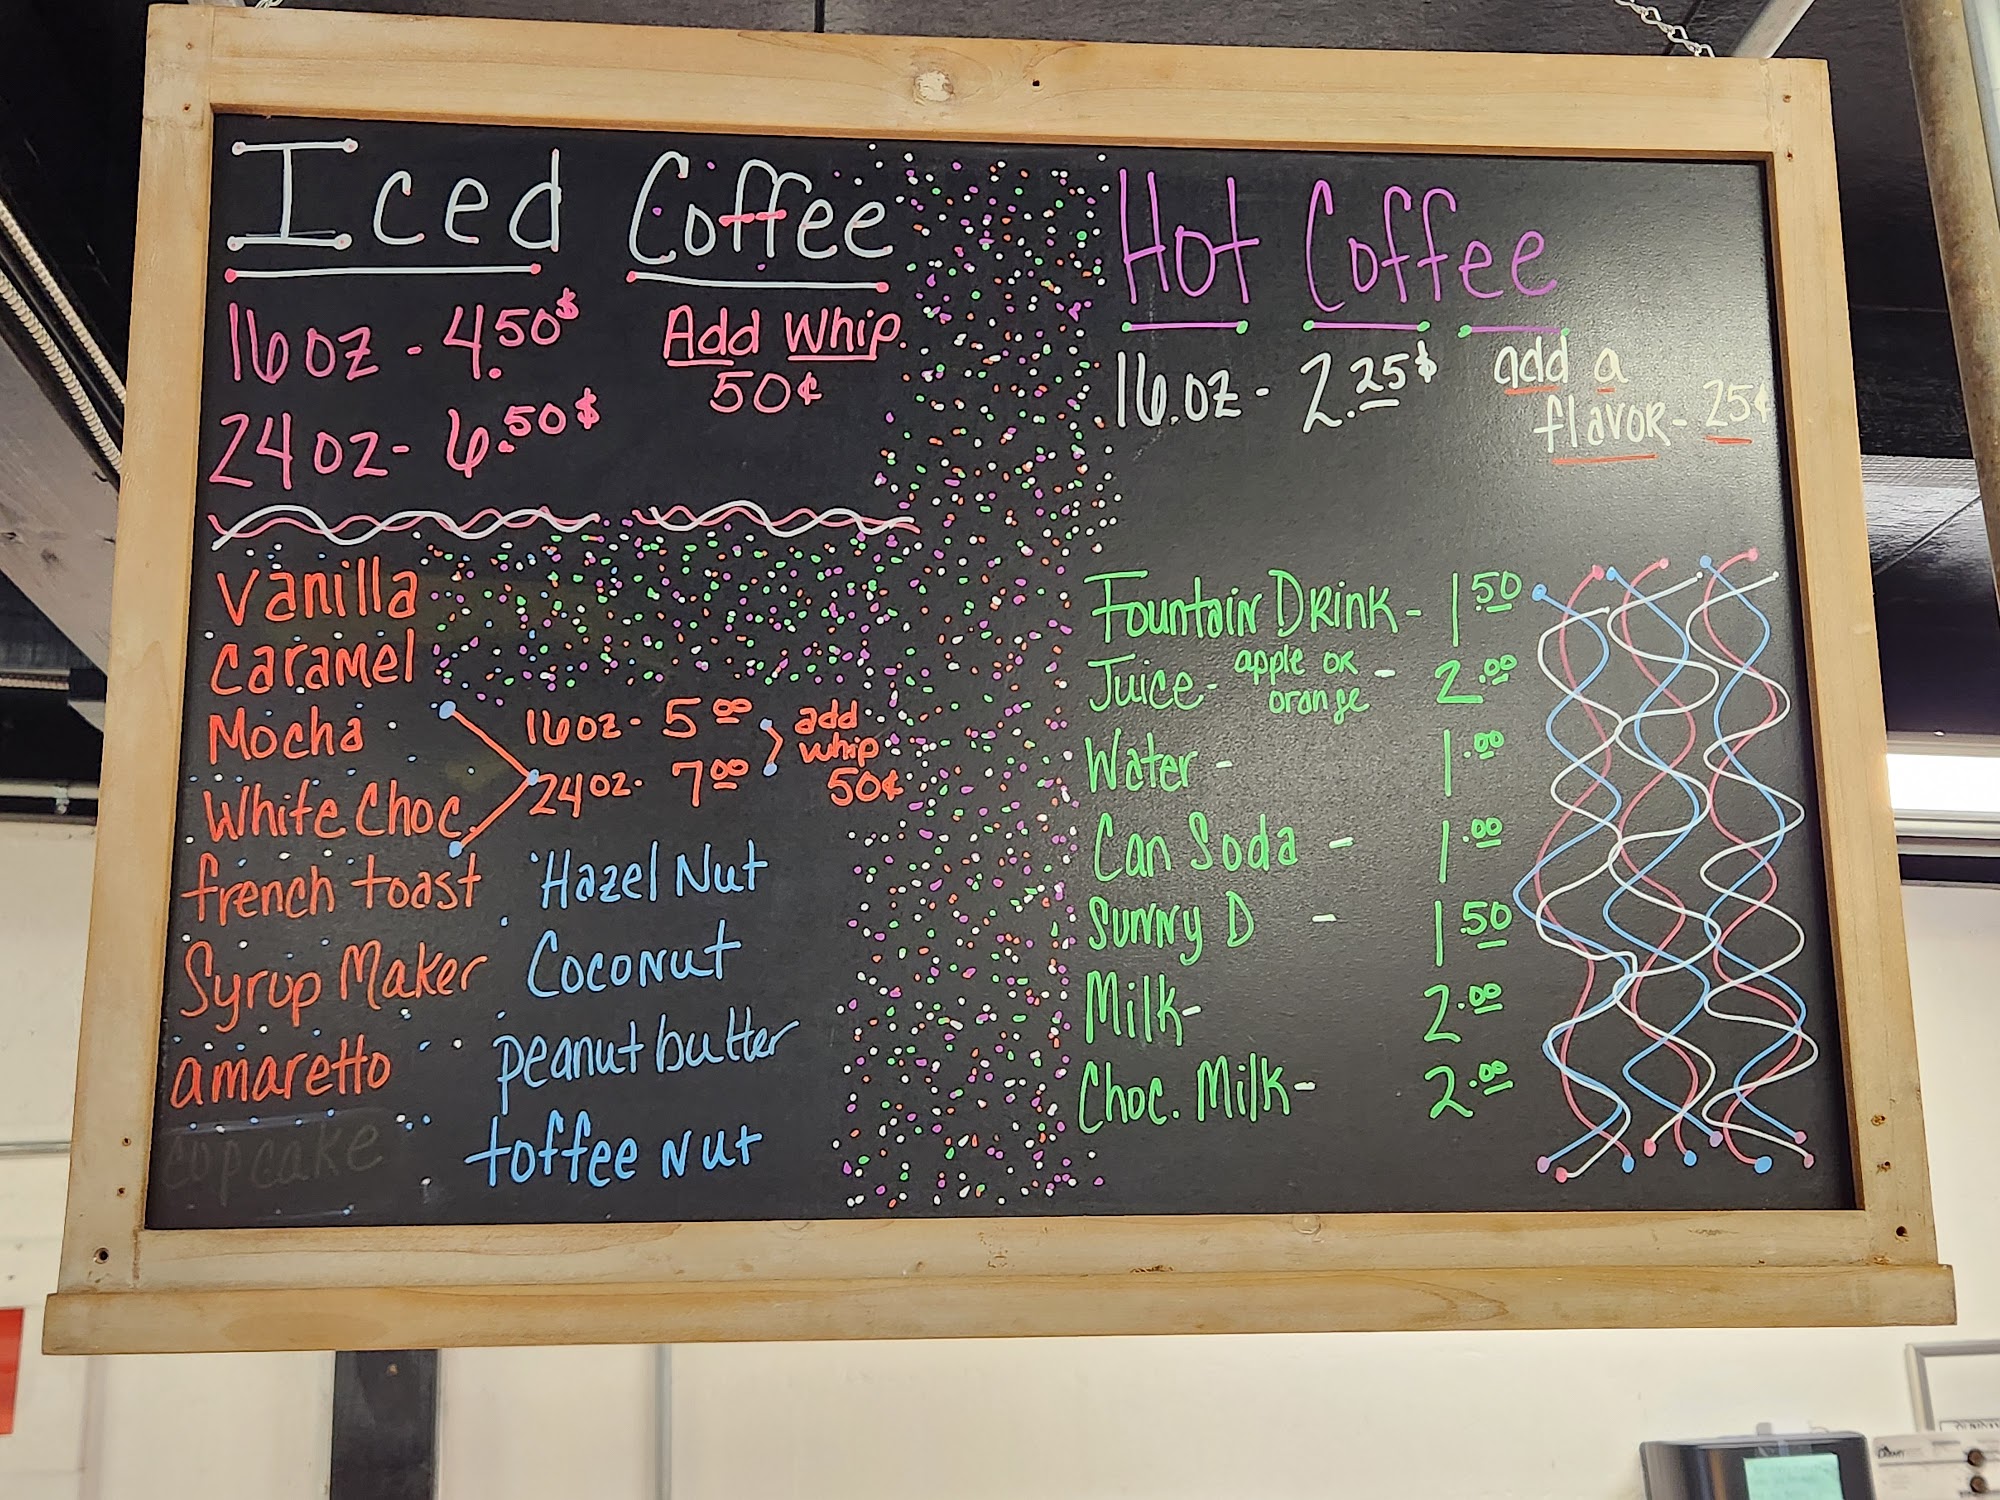 Iced Coffee
16oz - 4.50$
24oz - 6.50$
Add Whip
50¢
Vanilla
Caramel
Mocha
White Choc.
french toast
Syrup Maker
amaretto
cupcake
16oz - 5 00
24oz - 7 00
add
whip
50¢
Hazel Nut
Coconut
peanut butter
toffee Nut
Hot Coffee
16.oz - 2.25$
add a
flavor - 25¢
Fountain Drink - 1.50
Juice - apple or orange - 2.00
Water - 1.00
Can Soda - 1.00
Sunny D - 1.50
Milk - 2.00
Choc. Milk - 2.00